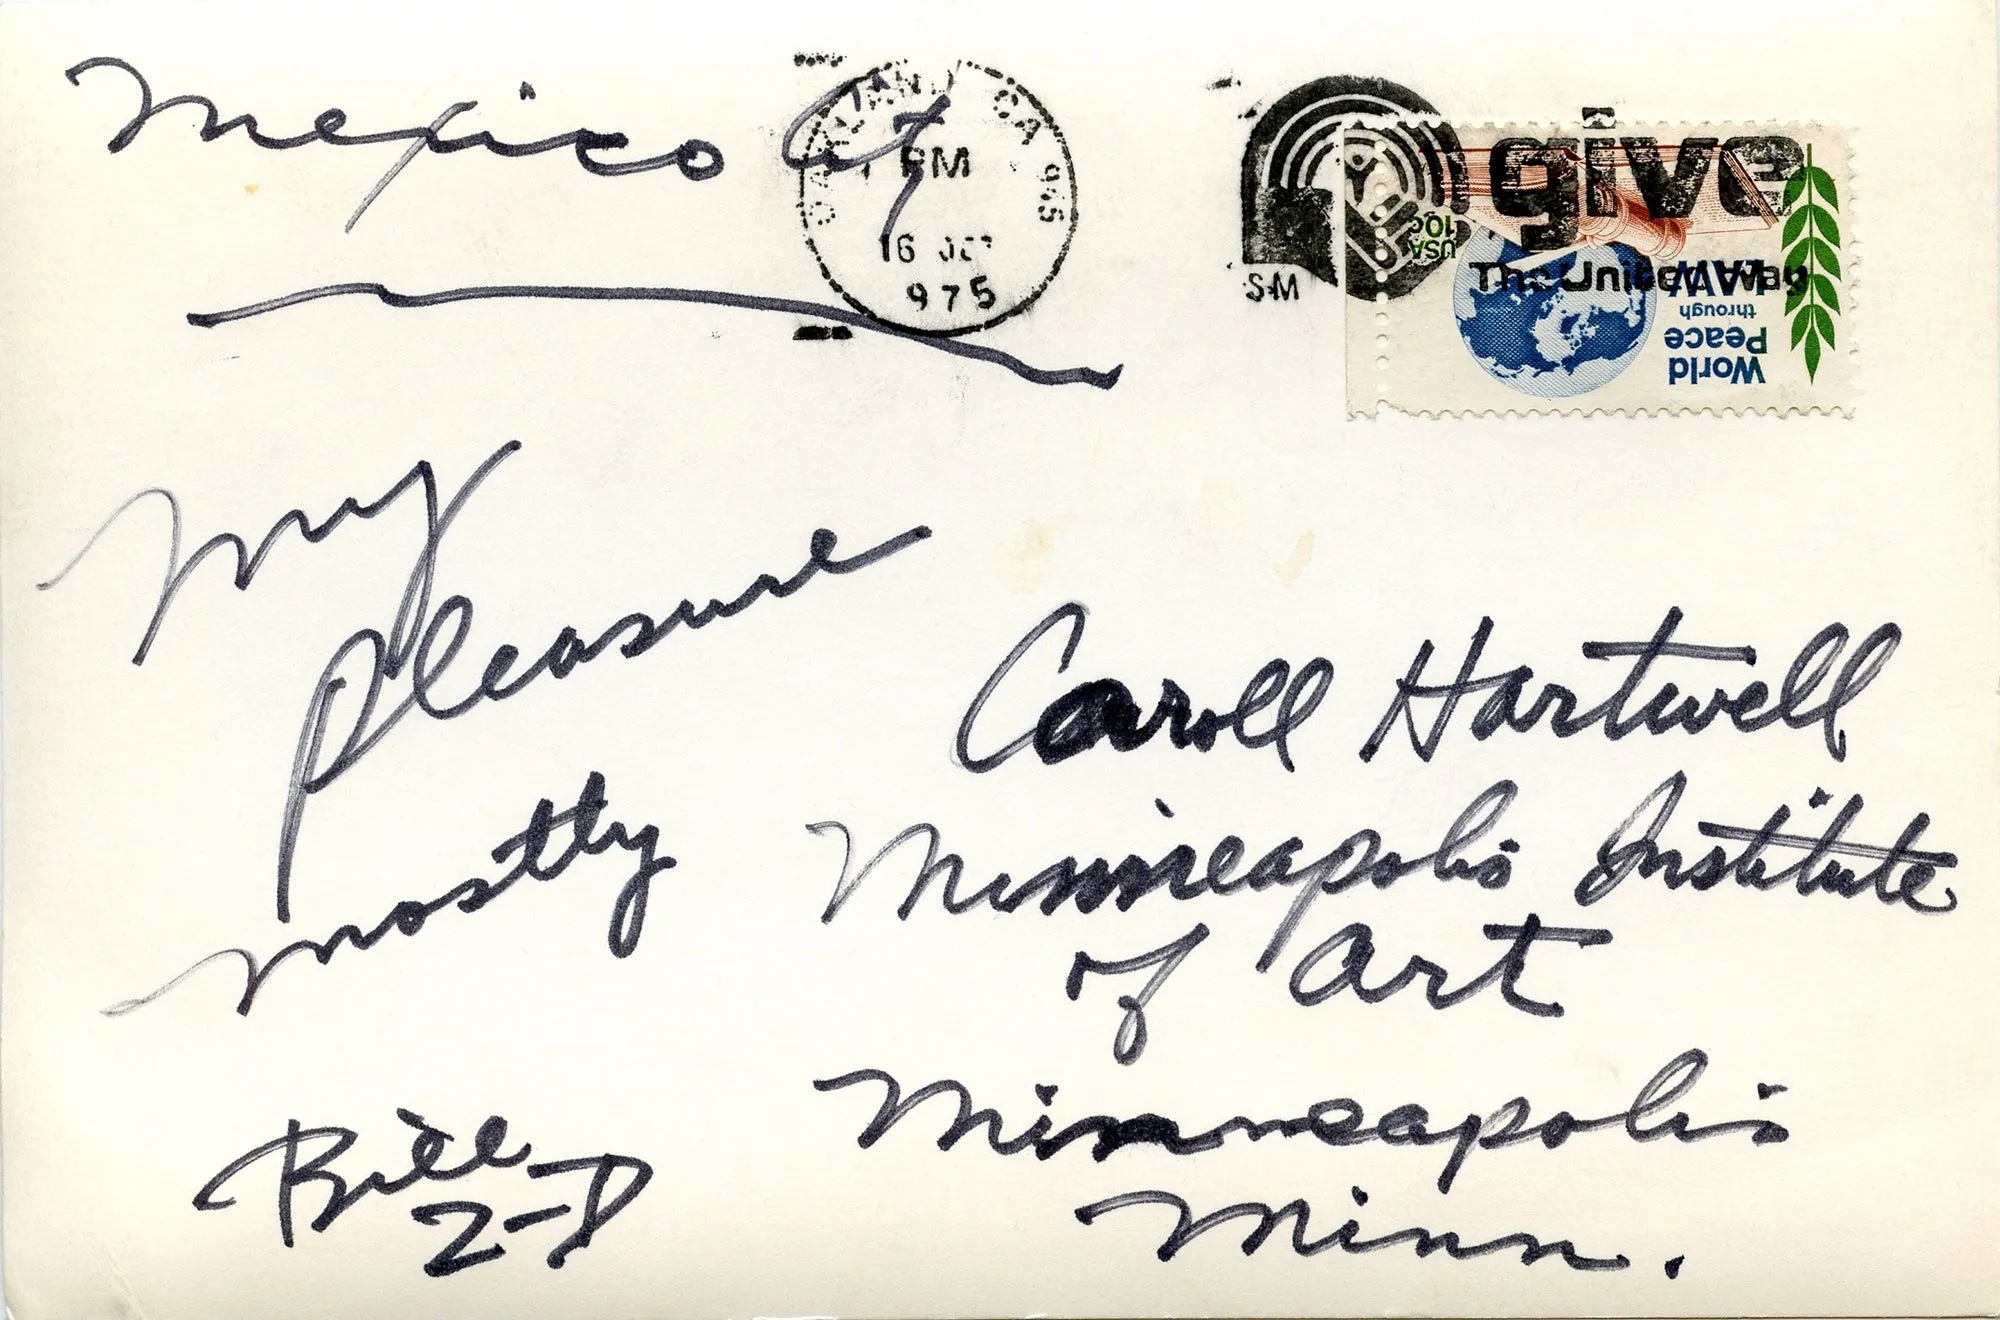 Mexico City
OAKLAND CA 945
PM
16 OCT
975
give
The United Way
SM
USA
10c
World
Peace
through
LAW
My
pleasure
mostly
Bill
Carroll Hartwell
Minneapolis Institute
of Art
Minneapolis
Minn.